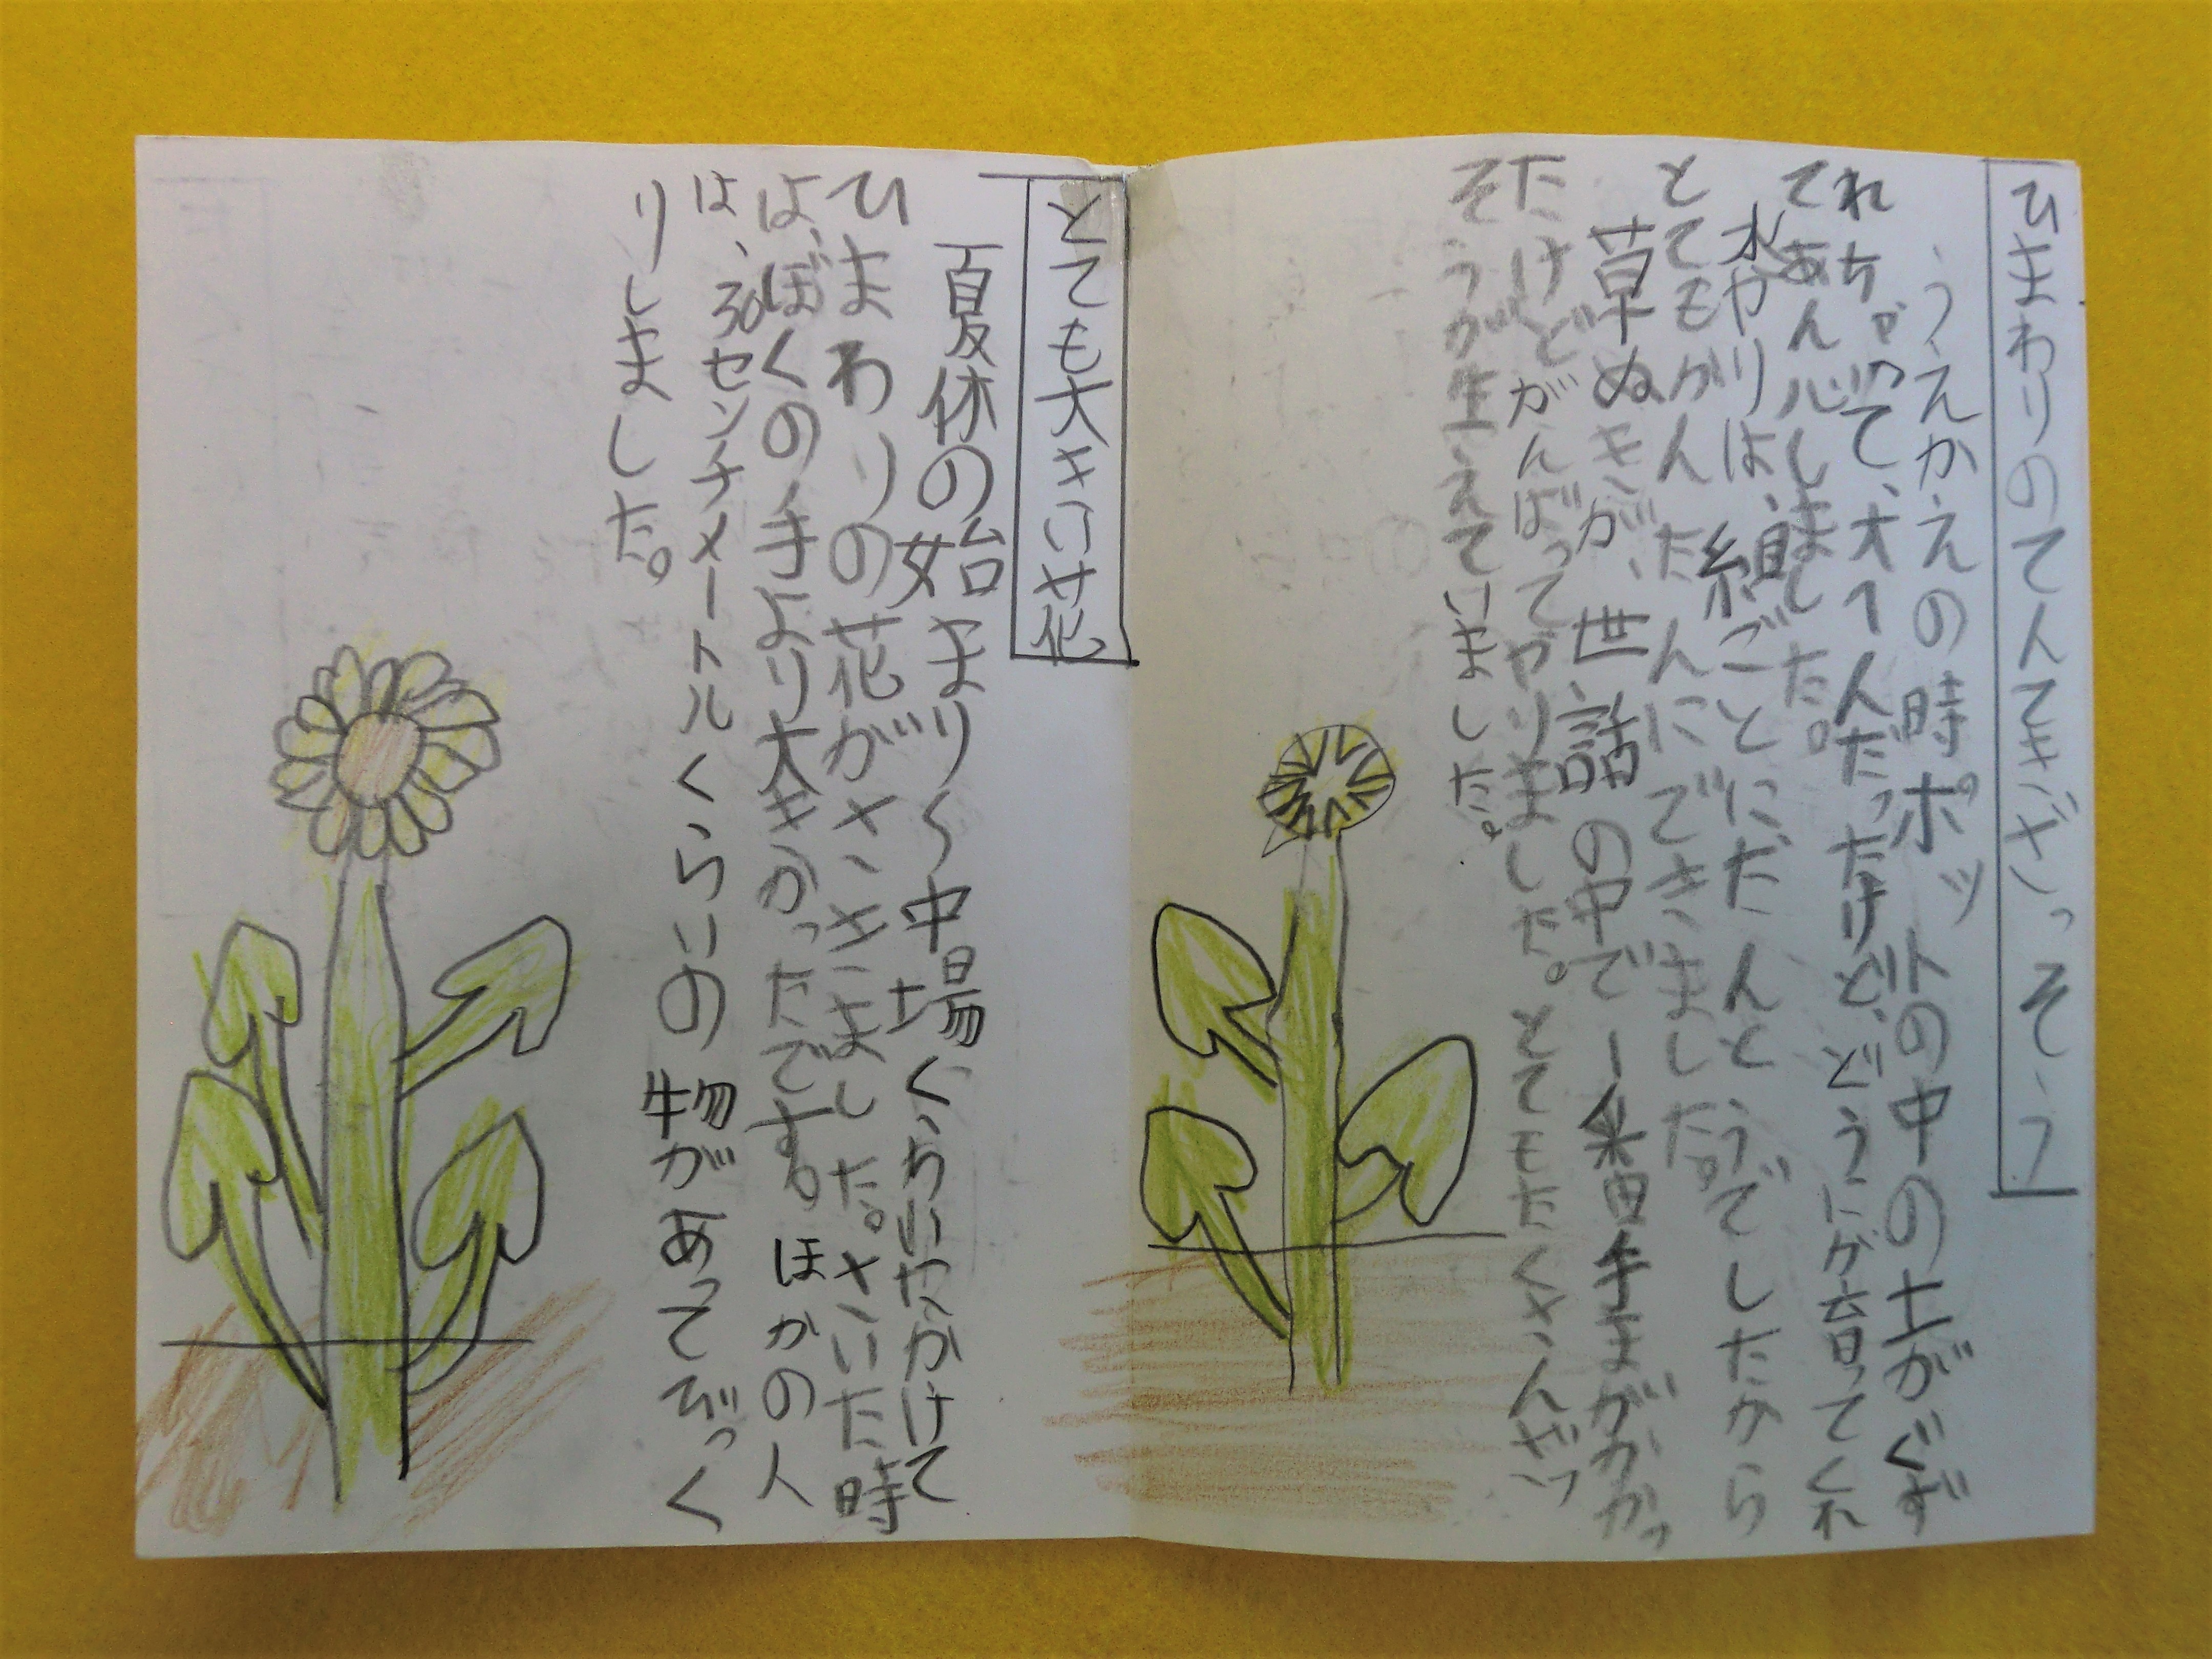 ひまわりのてんてきざっそう
うえかえの時ポットの中の土がぐず
れちゃって、大へんだったけど、どうにか育ってくれ
てあん心しました。
水やりは、組ごとにだんとうでしたから
とてもかんたんにできました。
草ぬきが、世話の中で一番手まがかかっ
たけどがんばってやりました。とてもたくさんざっ
そうが生えていました。
とても大きい花
夏休の始まり〜中場くらいにかけて
ひまわりの花がさきました。さいた時
は、ぼくの手より大きかったです。ほかの人
は、30センチメートルくらいの物があってびっく
りしました。